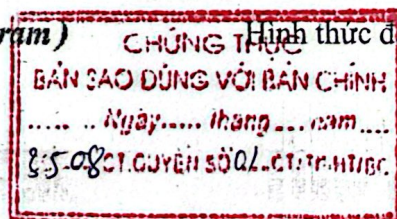 ram) Hình thức đ
CHỨNG THỰC
BẢN SAO ĐÚNG VỚI BẢN CHÍNH
..... .. Ngày..... tháng ... năm ....
CT.QUYỂN SỐ 01